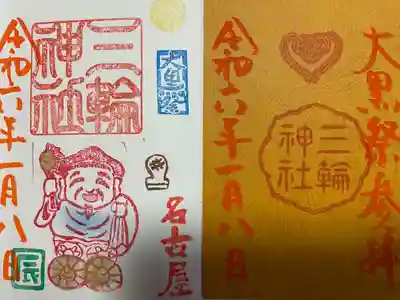 大黒祭参拝
三輪
神社
令和六年一月八日
大黒祭
三輪
神社
名古屋
令和六年一月八日
辰